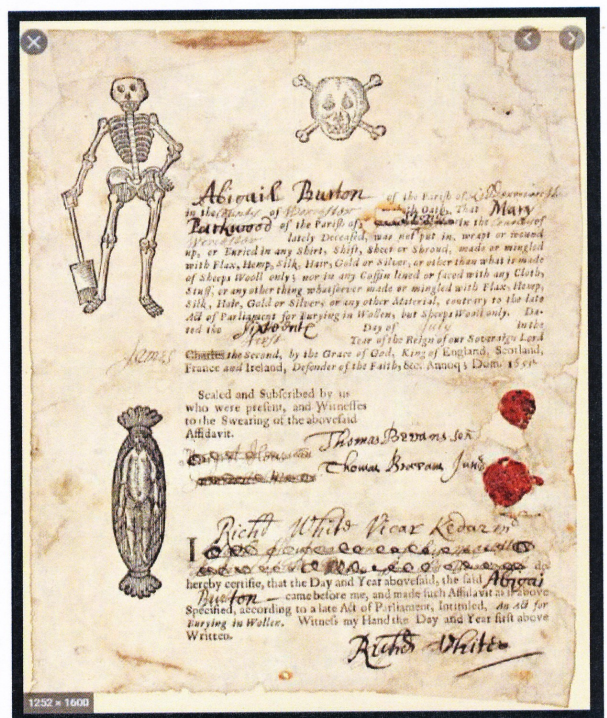 Abigail Burton of the Parish of
in the County of Worcester Oath, That Mary
Parkwood of the Parish of in the
Worcester lately Deceased, was not put in, wrapt or wound
up, or Buried in any Shirt, Shift, Sheet or Shroud, made or mingled
with Flax, Hemp, Silk, Hair, Gold or Silver, or other than what is made
of Sheeps Wooll only; nor in any Coffin lined or faced with any Cloth,
Stuff, or any other thing whatsoever made or mingled with Flax, Hemp,
Silk, Hair, Gold or Silver, or any other Material, contrary to the late
Act of Parliament for Burying in Wollen, but Sheeps Wooll only. Da-
ted the Sixteenth Day of July in the
first Year of the Reign of our Sovereign Lord
James Charles the Second, by the Grace of God, King of England, Scotland,
France and Ireland, Defender of the Faith, &c. Annoq; Dom.
Sealed and Subscribed by us
who were present, and Witnesses
to the Swearing of the abovesaid
Affidavit.
Thomas
Thomas Junr
Richd White Vicar
I
do
hereby certifie, that the Day and Year abovesaid, the said Abigail
Burton came before me, and made such Affidavit as is above
Specified, according to a late Act of Parliament, Intituled, An Act for
Burying in Wollen. Witness my Hand the Day and Year first above
Written.
Richd White
1252 × 1600